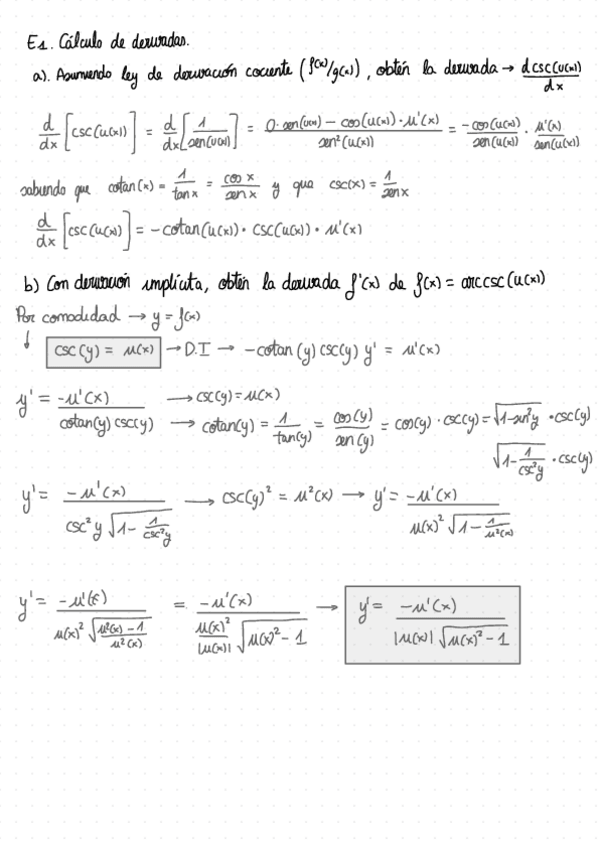 E1. Cálculo de derivadas.
a). Asumiendo ley de derivación cociente (f(x)/g(x)), obtén la derivada → d csc(u(x))/dx
d/dx [csc(u(x))] = d/dx [1/sen(u(x))] = (0·sen(u(x)) − cos(u(x))·u'(x))/sen²(u(x)) = −cos(u(x))/sen(u(x)) · u'(x)/sen(u(x))
sabiendo que cotan(x) = 1/tan x = cos x/sen x y que csc(x) = 1/sen x
d/dx [csc(u(x))] = −cotan(u(x))·csc(u(x))·u'(x)
b) Con derivación implícita, obtén la derivada f'(x) de f(x) = arccsc(u(x))
Por comodidad → y = f(x)
↓ csc(y) = u(x) → D.I → −cotan(y) csc(y) y' = u'(x)
y' = −u'(x)/(cotan(y) csc(y)) → csc(y) = u(x)
→ cotan(y) = 1/tan(y) = cos(y)/sen(y) = cos(y)·csc(y) = √(1−sen²y) · csc(y)
√(1−1/csc²y) · csc(y)
y' = −u'(x)/(csc²y √(1−1/csc²y)) → csc(y)² = u²(x) → y' = −u'(x)/(u(x)² √(1−1/u²(x)))
y' = −u'(x)/(u(x)² √((u²(x)−1)/u²(x))) = −u'(x)/((u(x)²/|u(x)|) √(u(x)²−1)) → y' = −u'(x)/(|u(x)| √(u(x)²−1))